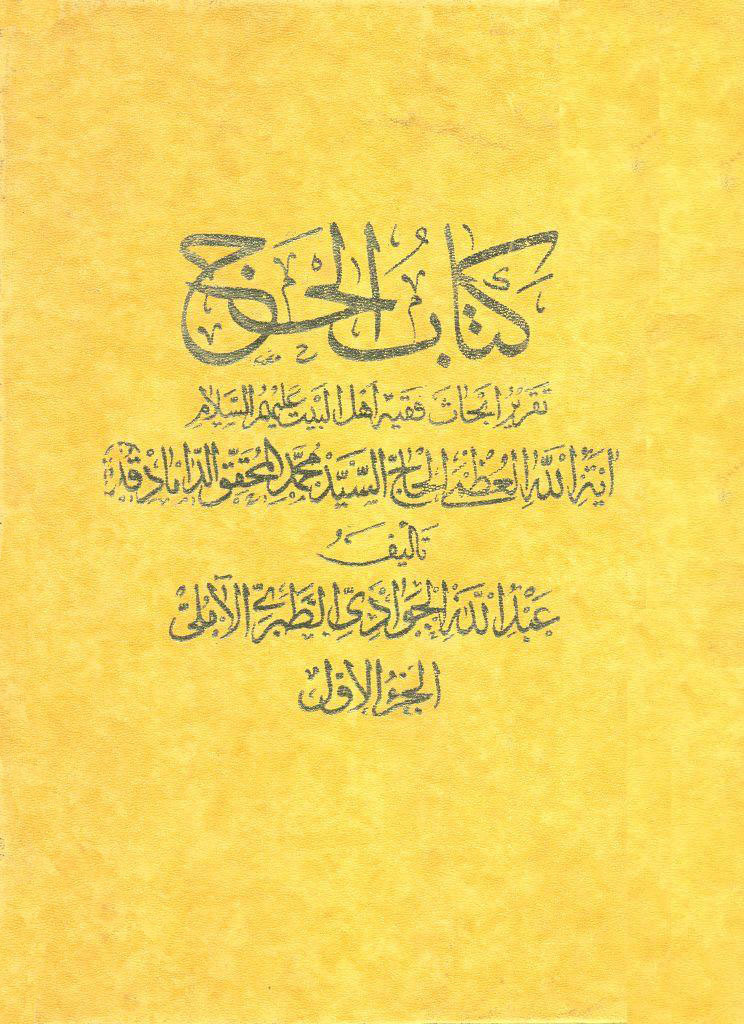 كتاب الحج
تقرير ابحاث فقيه اهل البيت عليهم السلام
اية الله العظمى الحاج السيد محمد المحقق الداماد قده
تأليف
عبد الله الجوادي الطبري الآملي
الجزء الاول